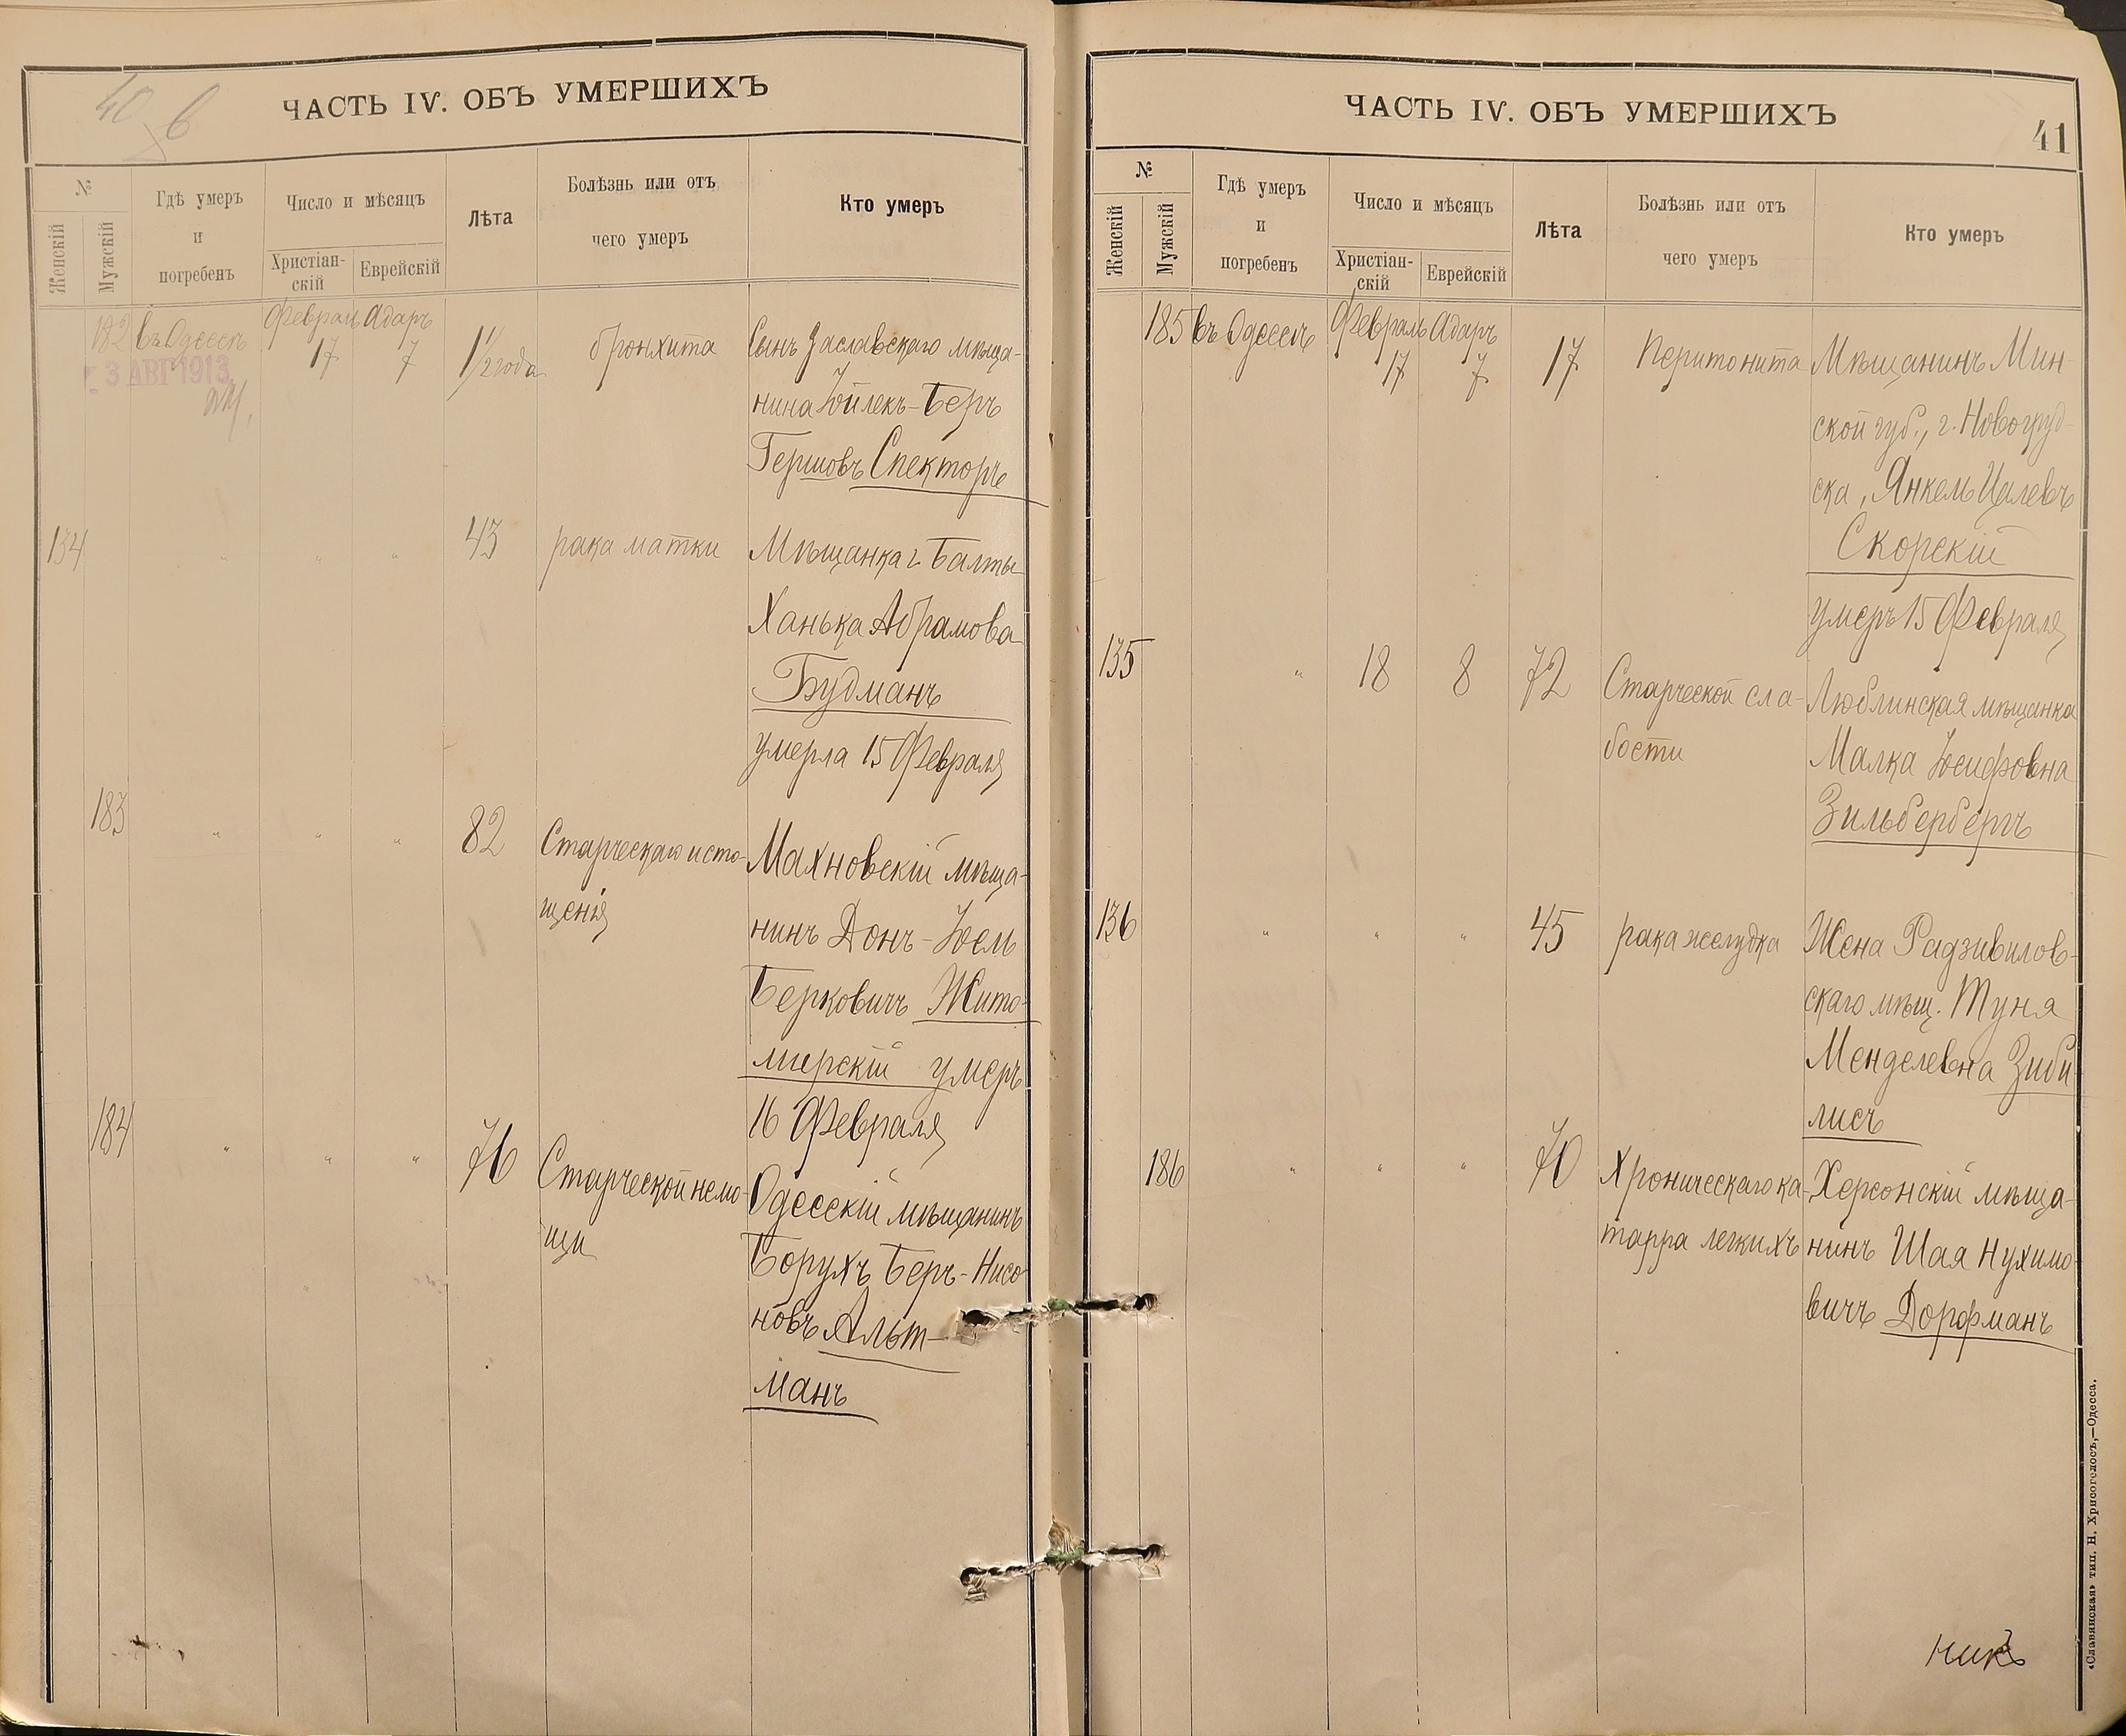 40 б
ЧАСТЬ IV. ОБЪ УМЕРШИХЪ
№
Женскій
Мужскій
Гдѣ умеръ
и
погребенъ
Число и мѣсяцъ
Христіан-
скій
Еврейскій
Лѣта
Болѣзнь или отъ
чего умеръ
Кто умеръ
182 въ Одессѣ Февраль Адаръ
17 7 1 1/2 года бронхита Сынъ Заславскаго мѣща-
3 АВГ 1913
нина Іойлекъ-Беръ
Гершовъ Спекторъ
134 " " " 43 рака матки Мѣщанка г. Балты
Ханька Абрамова
Будманъ
умерла 15 Февраля
183 " " " 82 Старческаго исто- Махновскій мѣща-
щенія нинъ Донъ-Іоель
Берковичъ Жито-
мирскій умеръ
16 Февраля
184 " " " 76 Старческой немо- Одесскій мѣщанинъ
щи Борухъ Беръ-Нисо
новъ Альт-
манъ
ЧАСТЬ IV. ОБЪ УМЕРШИХЪ
41
№
Женскій
Мужскій
Гдѣ умеръ
и
погребенъ
Число и мѣсяцъ
Христіан-
скій
Еврейскій
Лѣта
Болѣзнь или отъ
чего умеръ
Кто умеръ
185 въ Одессѣ Февраль Адаръ
17 7 17 Перитонита Мѣщанинъ Мин-
ской губ., г. Новогруд-
ска, Янкель Цалевъ
Скорскій
умеръ 15 Февраля
135 " 18 8 72 Старческой сла- Люблинская мѣщанка
бости Малка Іосифовна
Зильбербергъ
136 " " " 45 рака желудка Жена Радзивилов-
скаго мѣщ. Туня
Менделевна Зиби-
лисъ
186 " " " 70 Хроническаго ка- Херсонскій мѣща-
тарра легкихъ нинъ Шая Нухимо-
вичъ Дорфманъ
«Славянская» тип. Н. Хрисогелосъ,—Одесса.